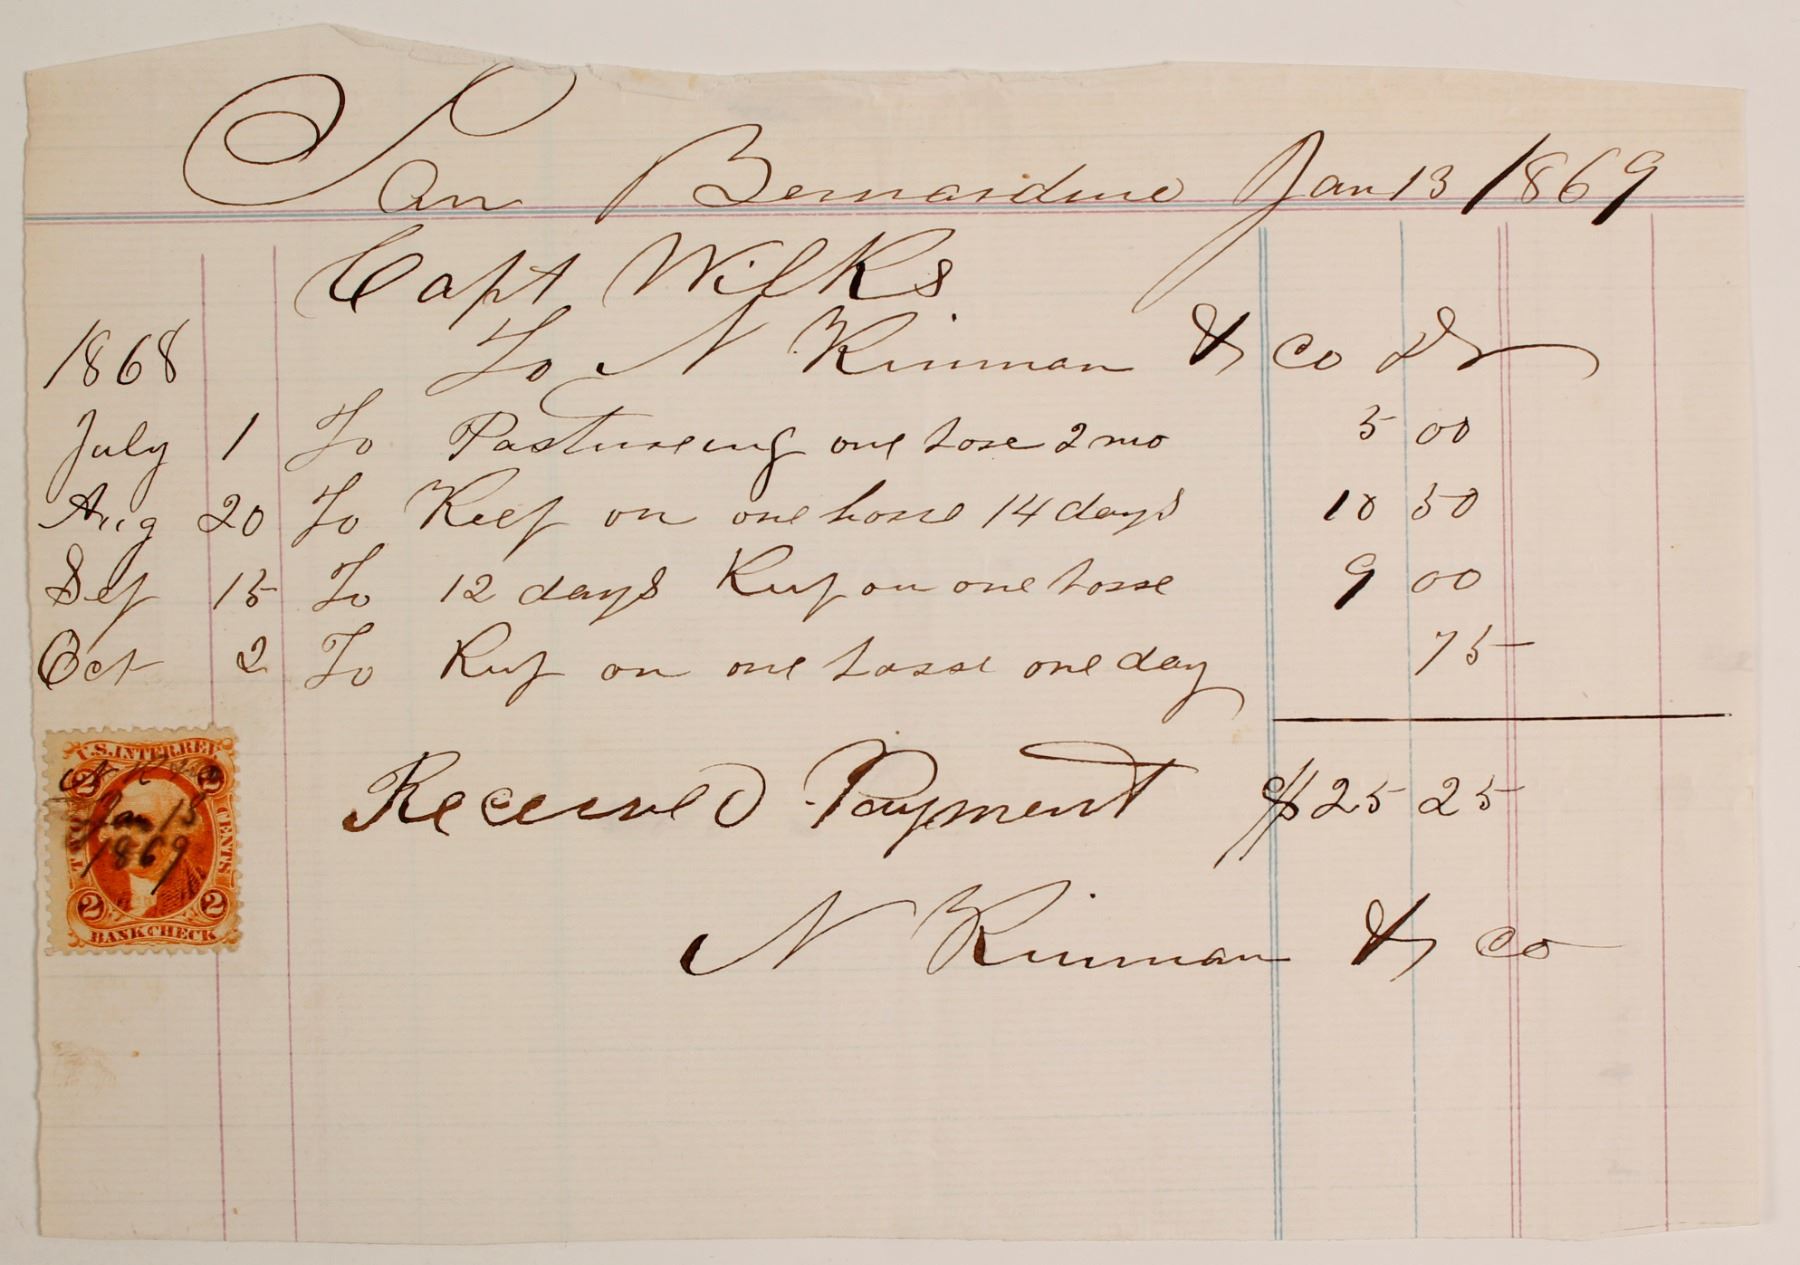 San Bernardino Jan 13 1869
Capt Wilks
1868 To N Kinman & Co Dr
July 1 To Pastureing one hose 2 mo 5 00
Aug 20 To Keep on one horse 14 days 10 50
Sep 15 To 12 days Keep on one horse 9 00
Oct 2 To Keep on one horse one day 75
Received Payment $25 25
N Kinman & Co
U.S. INTER. REV.
2 2
Jan 13
1869
TWO CENTS
2 2
BANK CHECK